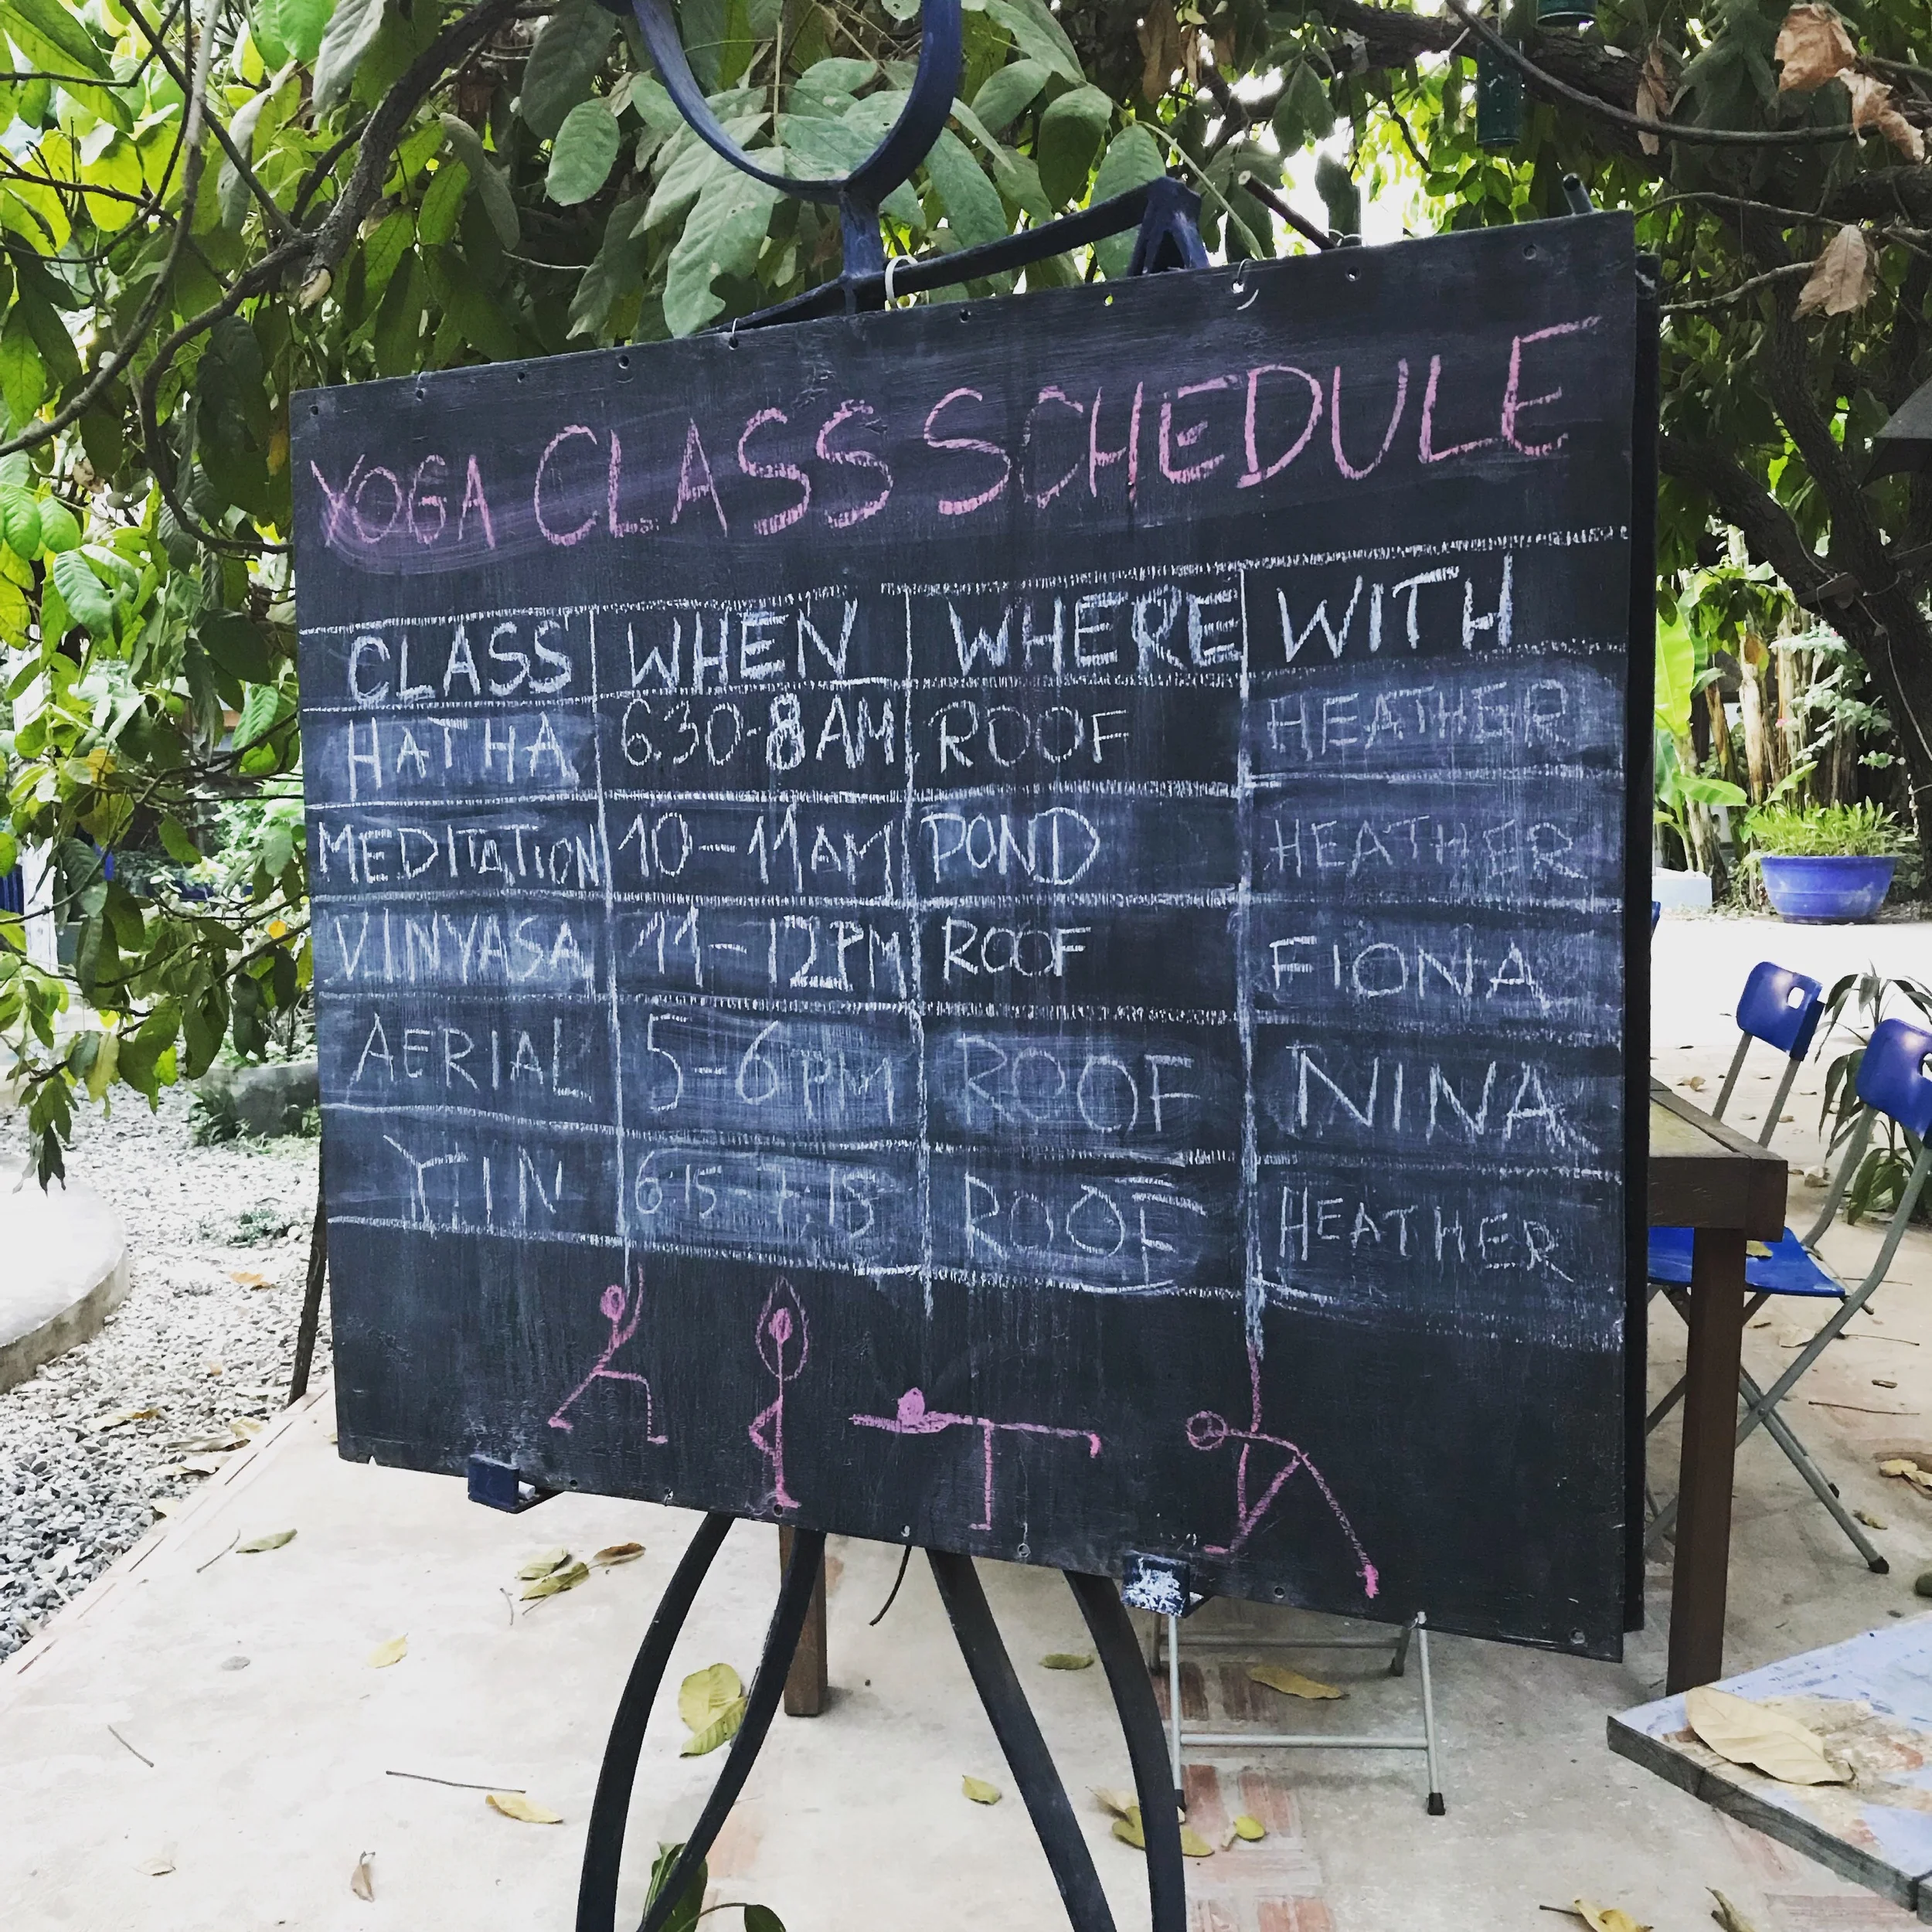 YOGA CLASS SCHEDULE
CLASS WHEN WHERE WITH
HATHA 6:30-8AM ROOF HEATHER
MEDITATION 10-11AM POND HEATHER
VINYASA 11-12PM ROOF FIONA
AERIAL 5-6PM ROOF NINA
YIN 6:15-7:15 ROOF HEATHER